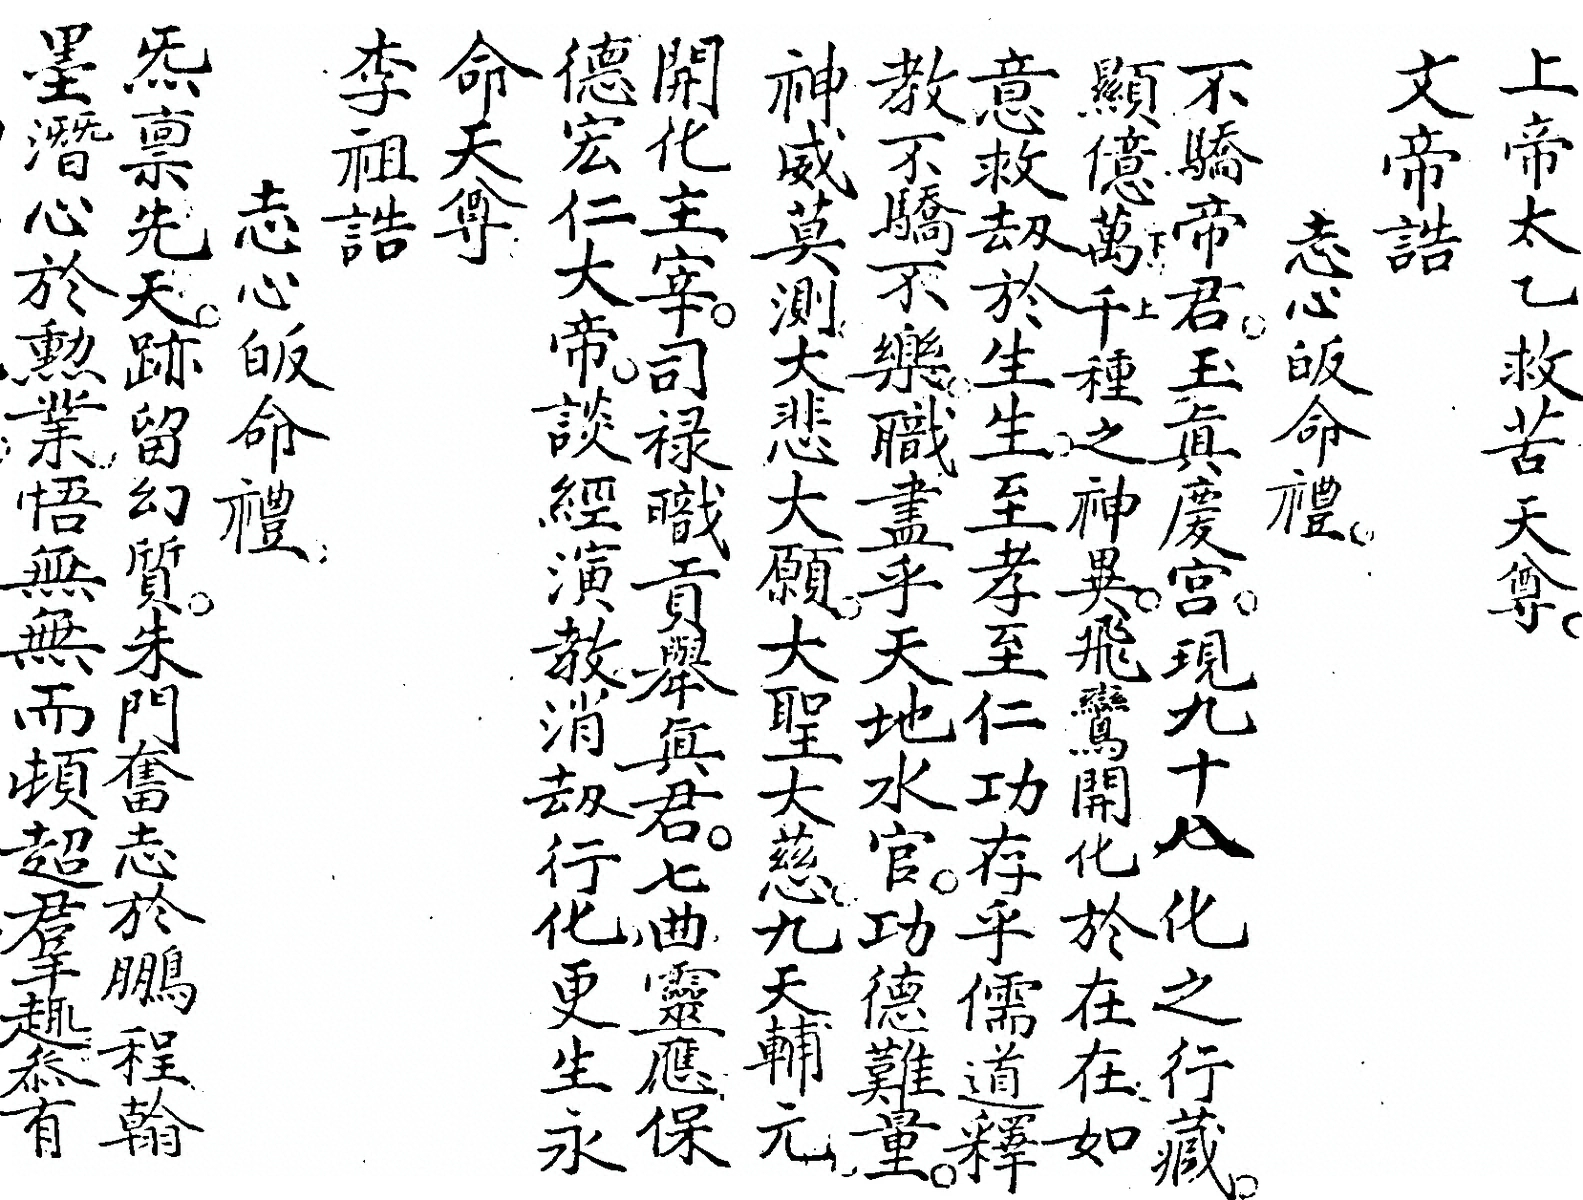 上帝太乙救苦天尊。
文帝誥
志心皈命禮。
不驕帝君。玉眞慶宮。現九十八化之行藏。
顯億萬下千上種之神異。飛鸞開化於在在如
意救劫於生生。至孝至仁功存乎儒道釋
教不驕不樂。職盡乎天地水官。功德難量。
神威莫測大悲大願。大聖大慈。九天輔元
開化主宰。司祿職貢舉眞君。七曲靈應保
德宏仁大帝。談經演教消劫行化更生永
命天尊
李祖誥
志心皈命禮
炁禀先天。跡留幻質。朱門奮志於鵬程翰
墨潛心於勲業。悟無無而頓超羣趣叅有